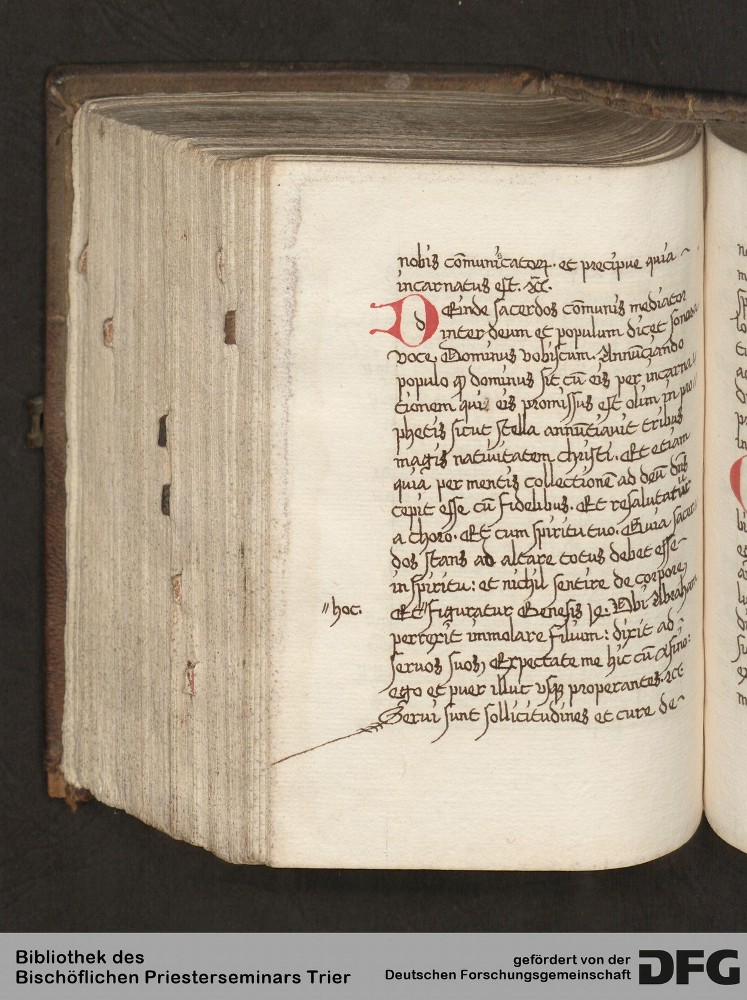 nobis cōmunicatoꝝ. et precipue quia
incarnatus est. ꝛc̄.
DEinde sacerdos cōmunis mediator
inter deum et populum dicet sonora
voce. Dominus vobiscum. Annūciando
populo ꝙ dominus sit cū eis per incarna
tionem qui eis promissus est olim in pro
phetis sicut stella annūtiauit tribus
magis natiuitatem christi. Et etiam
quia per mentis collectionē ad deū dn̄s
cepit esse cū fidelibus. Et resalutatur
a choro. Et cum spiritu tuo. Quia sacer
dos stans ad altare totus debet esse
in spiritu: et nichil sentire de corpore
"hoc.
Et" figuratur Genesis Vbi Abraham
perrexit immolare filium: dixit ad
seruos suos, Expectate me hic cū asino:
ego et puer illuc vsqꝫ properantes. ꝛct
Serui sunt sollicitudines et cure de
Bibliothek des
Bischöflichen Priesterseminars Trier
gefördert von der
Deutschen Forschungsgemeinschaft
DFG